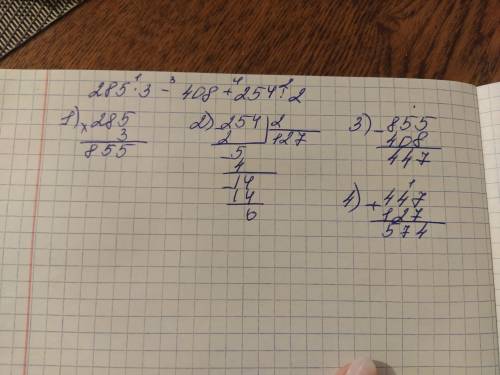 285 · 3 - 408 + 254 : 2
1 3 4 2
1) × 285
3
855
2) - 254 | 2
2 | 127
- 5
4
- 14
14
0
3) - 855
408
447
4) + 447
127
574